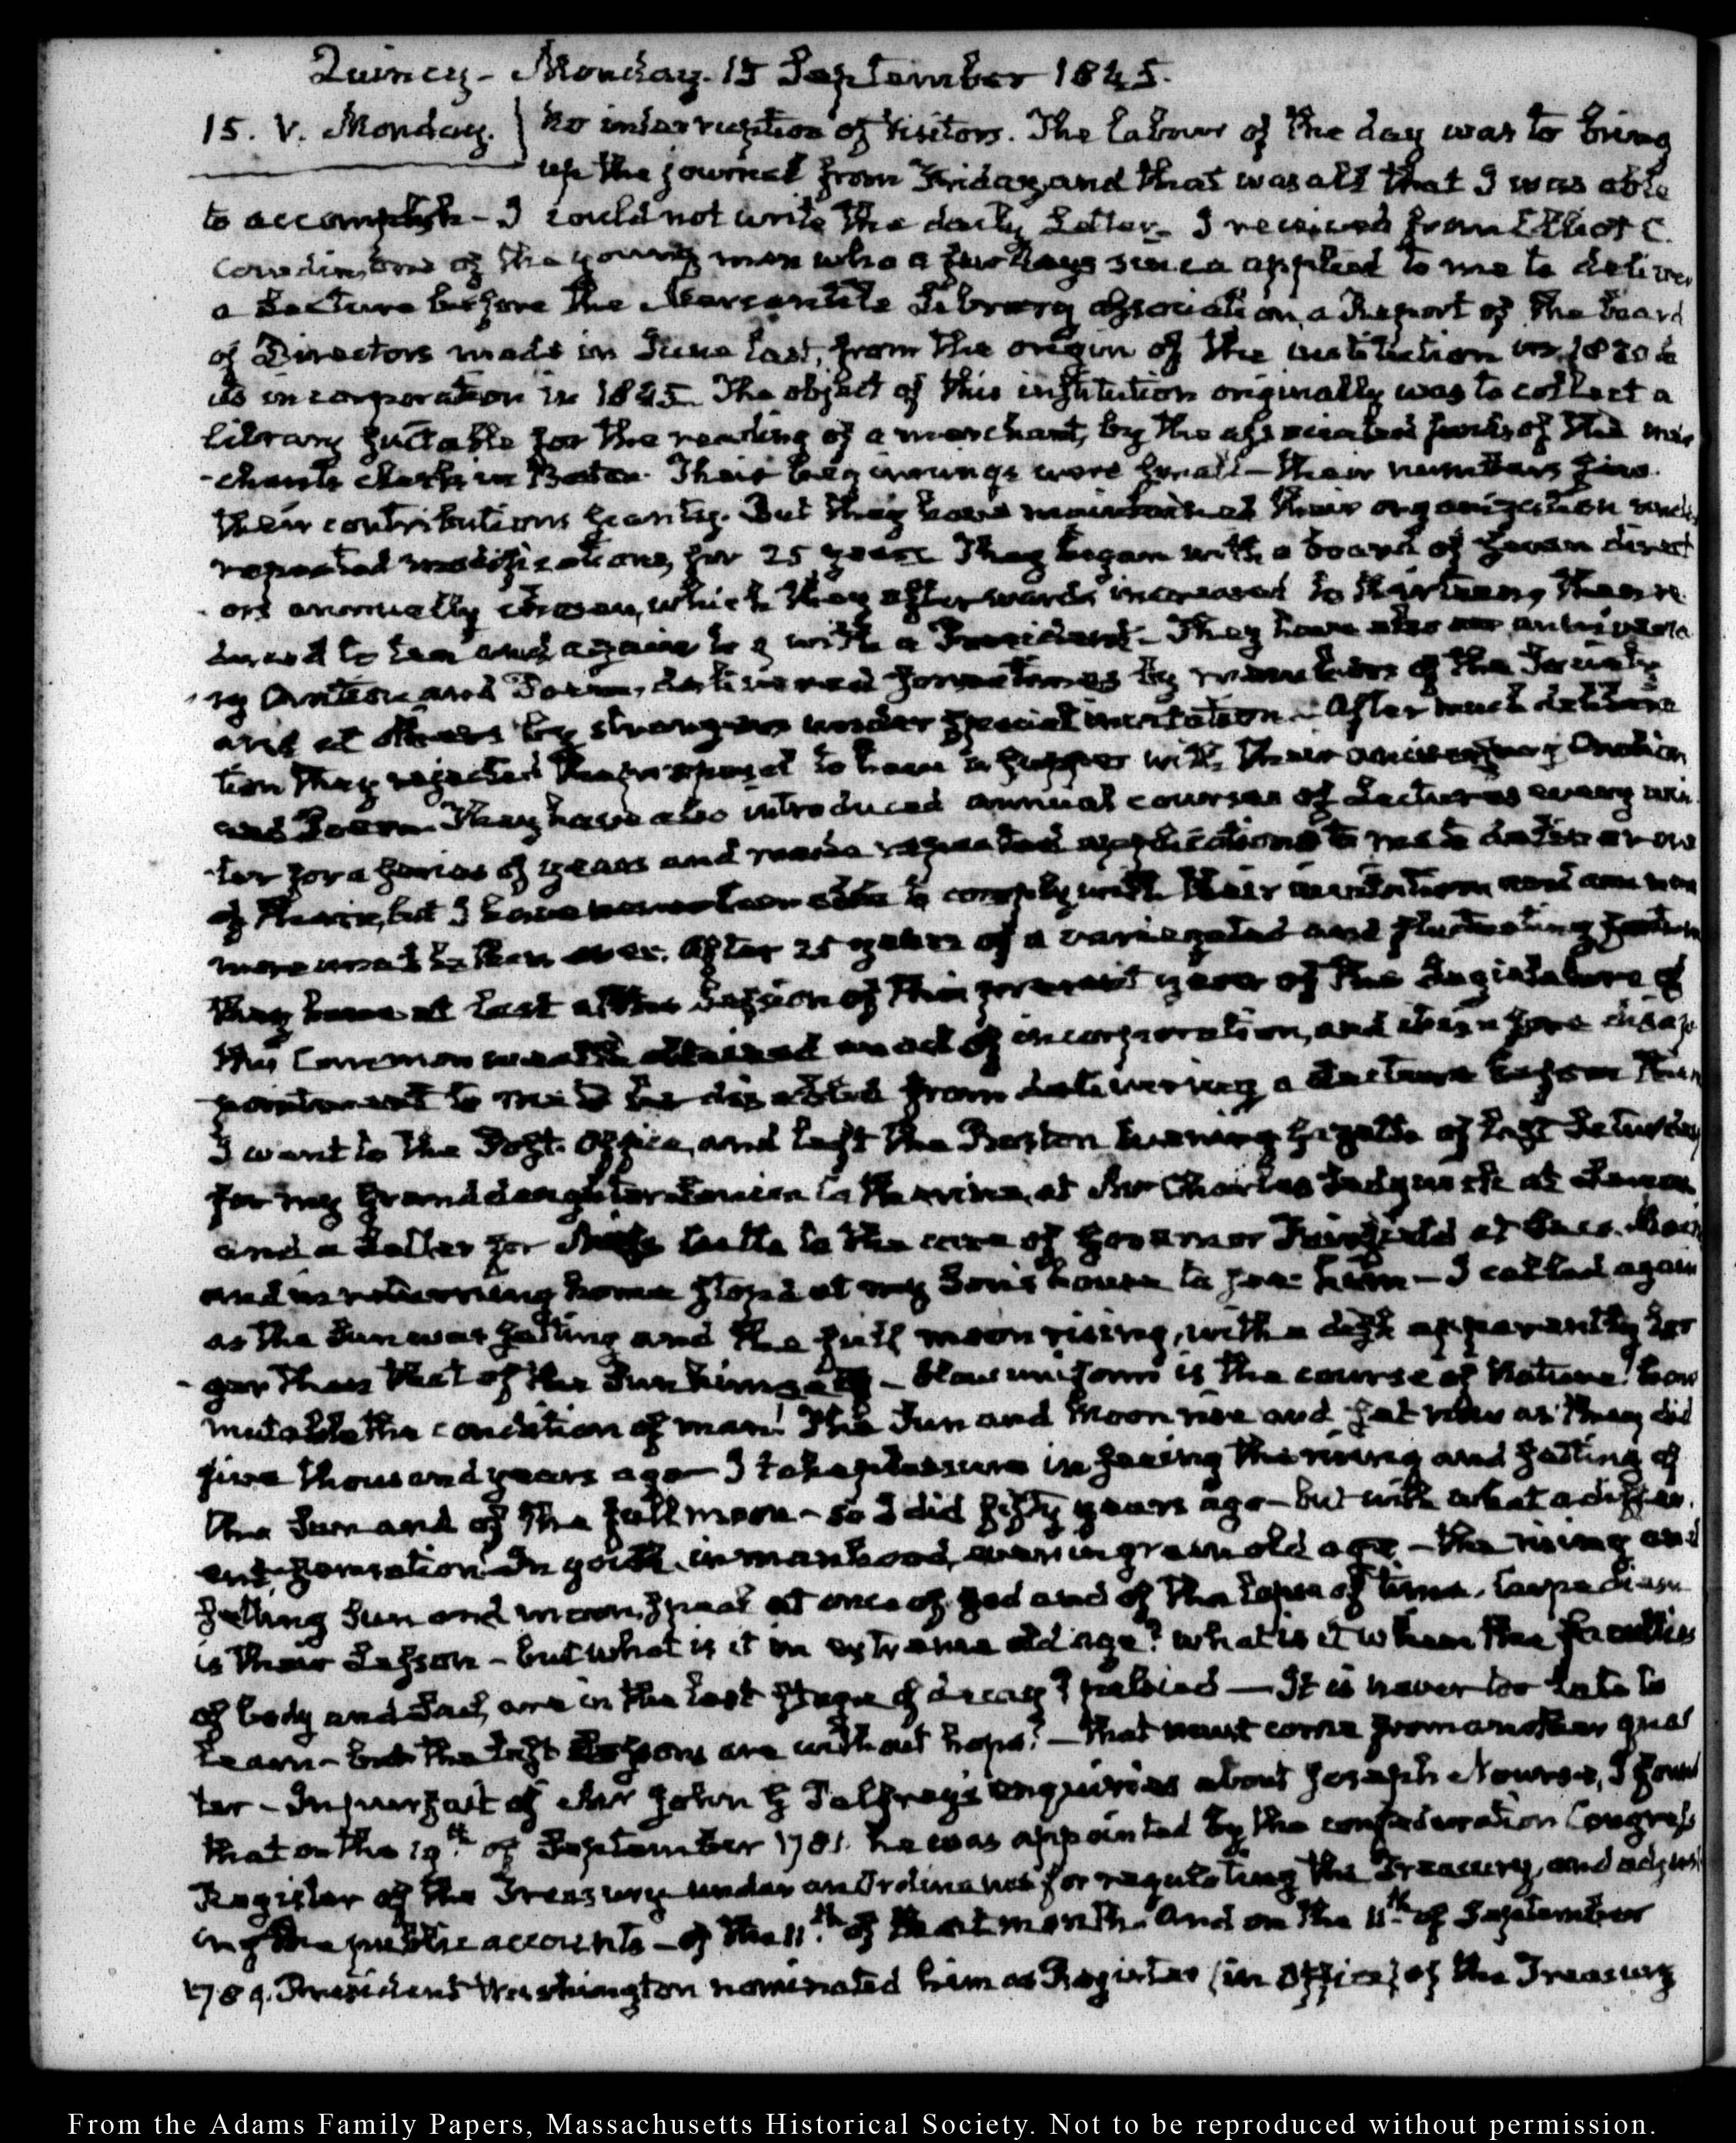 Quincy - Monday. 15 September 1845.
15. V. Monday. } No interruption of visitors. The labour of the day was to bring
up the journal from Friday, and that was all that I was able
to accomplish - I could not write the daily Letter - I received from Elliot C.
Cowdin, one of the young men who a few days since applied to me to deliver
a Lecture before the Mercantile Library Association, a Report of the board
of Directors made in June last, from the origin of the institution in 1820 to
its incorporation in 1845. The object of this institution originally was to collect a
library suitable for the reading of a merchant, by the associated funds of the mer
-chants clerks in Boston. Their beginnings were small - their numbers few.
their contributions scanty. But they have maintained their organization under
repeated modifications, for 25 years. They began with a board of seven direct
-ors annually chosen, which they afterwards increased to thirteen, then re
duced to ten and again to 9 with a President - They have also an anniversa
-ry Oration and Poem, delivered sometimes by members of the Society
and at others by strangers under special invitation. After much delibera
tion they rejected the proposal to have a supper with their anniversary Oration
and Poem. They have also introduced annual courses of Lectures every win
-ter for a series of years and made repeated applications to me to deliver one
of them, but I have never been able to comply with their invitation and am now
more unable than ever. After 25 years of a variegated and fluctuating fortune
they have at last at the Session of this present year of the Legislature of
this Commonwealth obtained an act of incorporation, and it is a sore disap
pointment to me to be disabled from delivering a Lecture before them
I went to the Post-Office, and left the Boston Evening Gazette of last Saturday
for my Granddaughter Louisa Catherine, at Mr Charles Sedgwick at Lenox
and a Letter for Miss Cutts to the care of Governor Fairfield at Saco. Maine
and in returning home stop'd at my Son's house to see him - I called again
as the Sun was setting and the full moon rising, with a disk apparently lar
-ger than that of the Sun himself - How uniform is the course of Nature! how
mutable the condition of man! The Sun and Moon rise and set now as they did
five thousand years ago - I take pleasure in seeing the rising and setting of
the Sun and of the full moon - so I did fifty years ago - but with what a differ
ent sensation. In youth, in manhood, even in green old age - the rising and
setting Sun and moon, speak at once of God and of the lapse of time. Carpe diem
is their Lesson - but what is it in extreme old age? what is it when the faculties
of body and Soul, are in the last stage of decay? palsied - It is never too late to
learn - but the last lessons are without hope? - That must come from another quar
ter - In pursuit of Mr John G Palfrey's enquiries about Joseph Nourse, I found
that on the 19th of September 1781. he was appointed by the confederation Congress
Register of the Treasury under an Ordinance for regulating the Treasury, and adjust
ing the public accounts - of the 11th of that month. And on the 11th of September
1789. President Washington nominated him as Register (in Office) of the Treasury
From the Adams Family Papers, Massachusetts Historical Society. Not to be reproduced without permission.